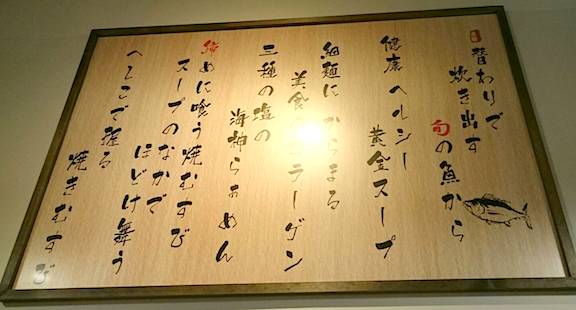 日替わりで
炊き出す
旬の魚から
健康 ヘルシー
黄金スープ
細麺に からまる
美食コラーゲン
三種の塩の
海神らぁめん
締めに喰う焼むすび
スープのなかで
ほどけ舞う
へしこで握る
焼きむすび